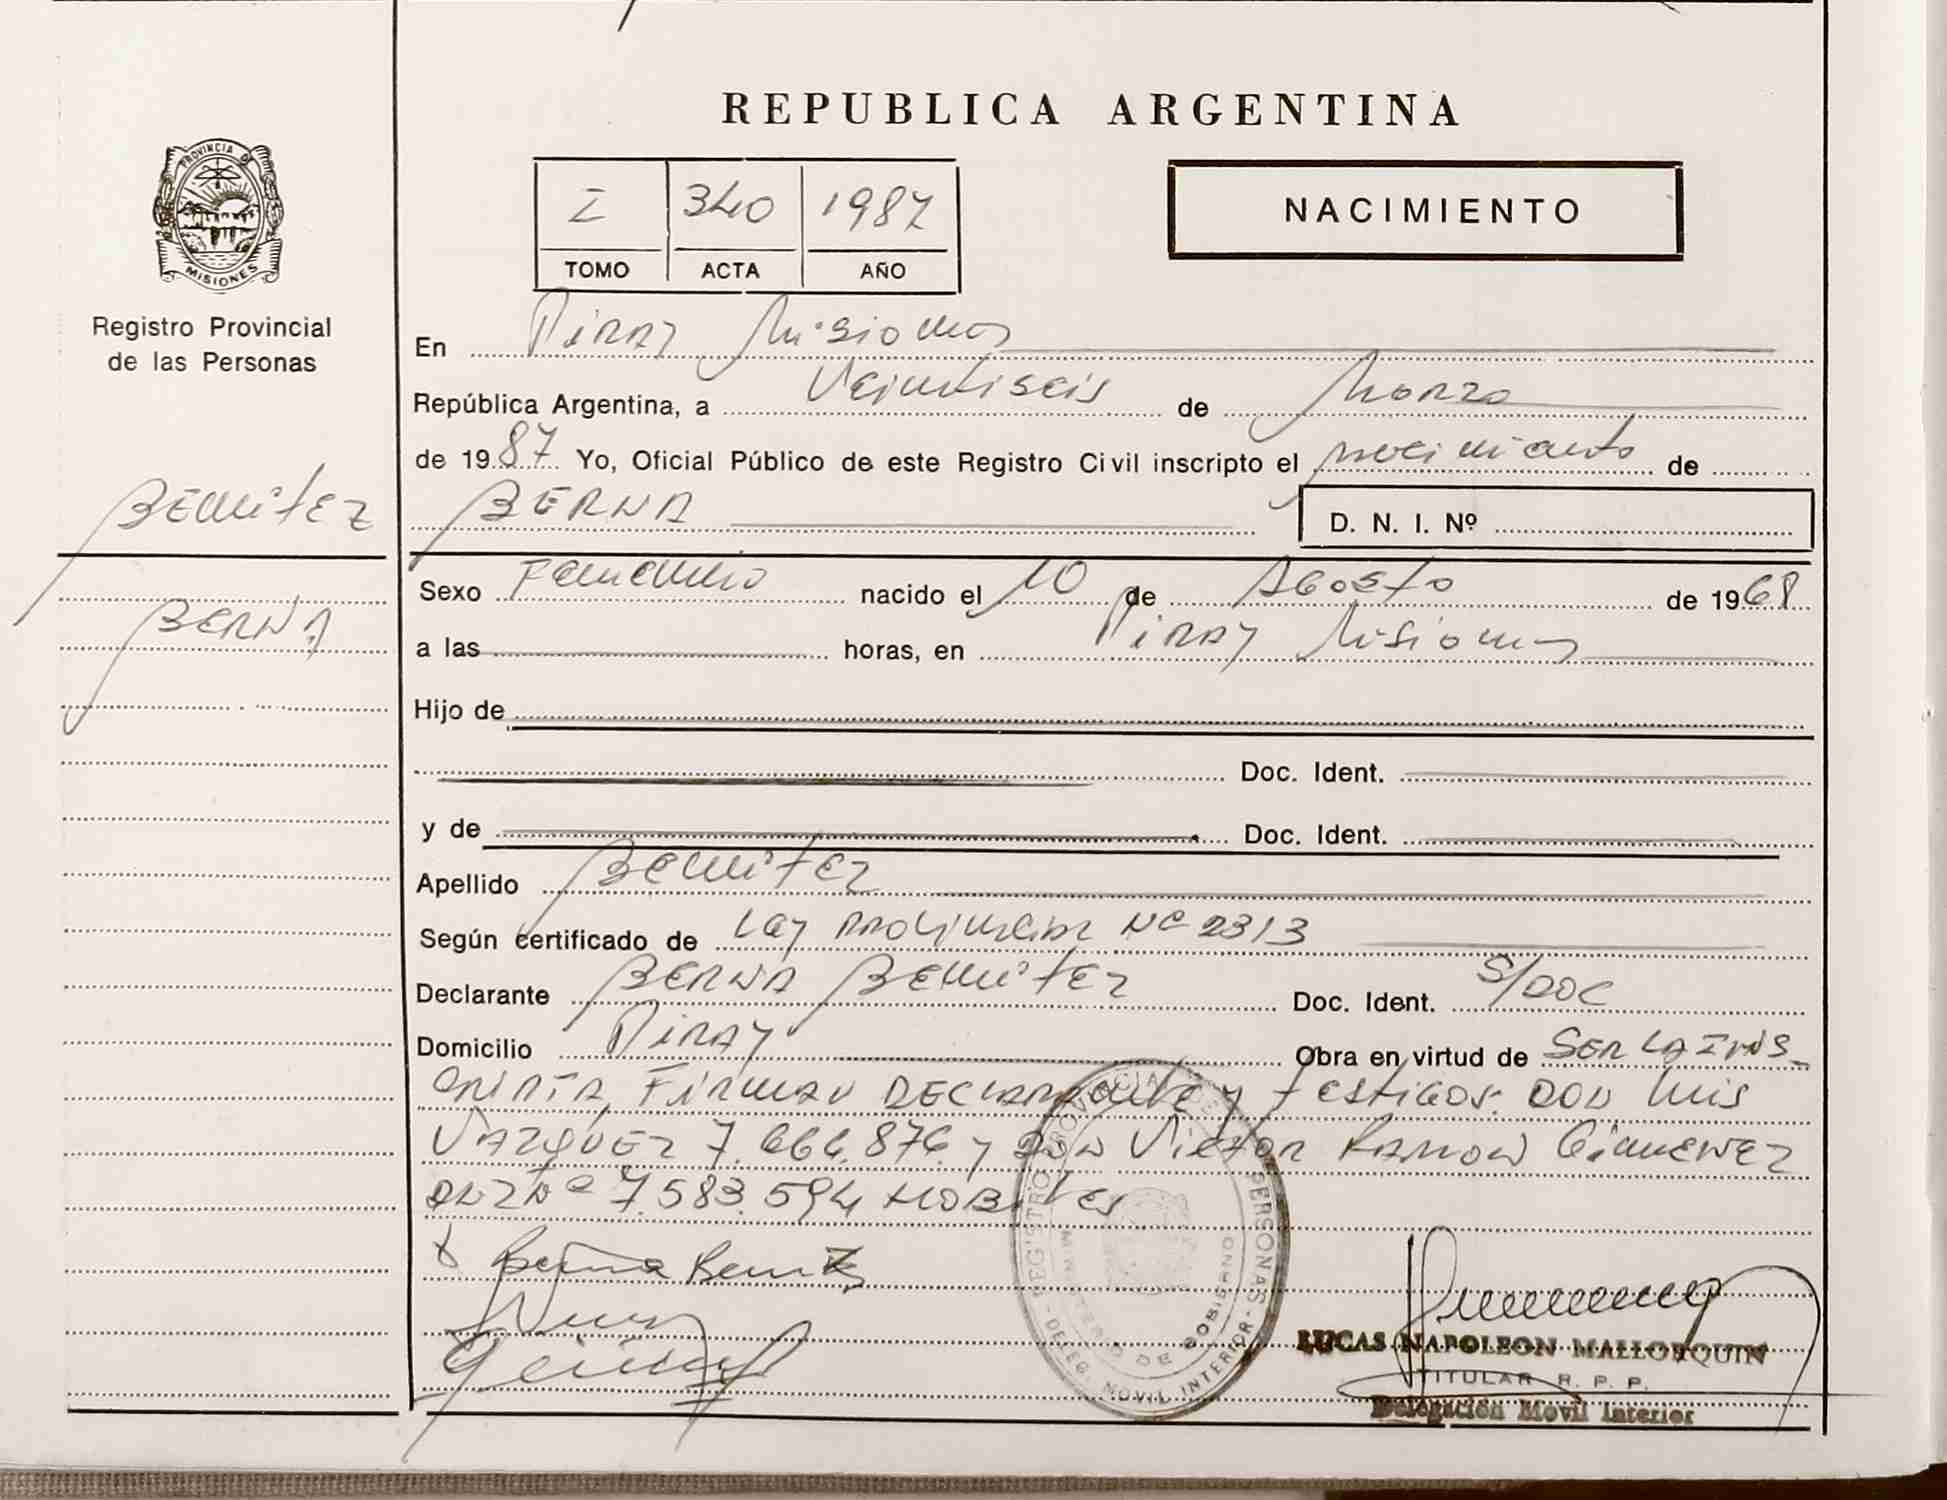 REPUBLICA ARGENTINA
PROVINCIA DE
MISIONES
Registro Provincial
de las Personas
I 340 1987
TOMO ACTA AÑO
NACIMIENTO
En Piray Misiones
República Argentina, a Veintiseis de Marzo
de 1987 Yo, Oficial Público de este Registro Civil inscripto el nacimiento de
BENITEZ
BERNA
BERNA
D. N. I. Nº
Sexo Femenino nacido el 10 de Agosto de 1968
a las horas, en Piray Misiones
Hijo de
Doc. Ident.
y de Doc. Ident.
Apellido BENITEZ
Según certificado de Ley Provincial Nº 2313
Declarante BERNA BENITEZ Doc. Ident. S/DOC
Domicilio Piray Obra en virtud de SER LA INS-
CRIPTA, Firman DECLARANTE y testigos: DON Luis
VAZQUEZ 7.666.876 y DON Victor RAMON GiMENEZ
DNI Nº 7.583.594 HOBiles
x Berna Benitez
REGISTRO PROVINCIAL DE PERSONAS
MINISTERIO DE GOBIERNO
DELEG. MOVIL INTERIOR
LUCAS NAPOLEON MALLORQUIN
TITULAR R. P. P.
Delegación Movil Interior